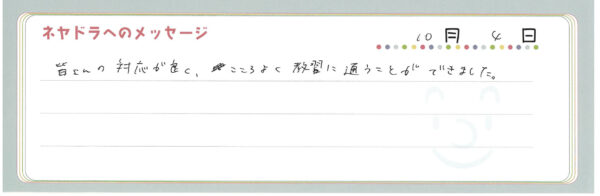 ネヤドラへのメッセージ
10月 4日
皆さんの対応が良く、こころよく教習に通うことができました。